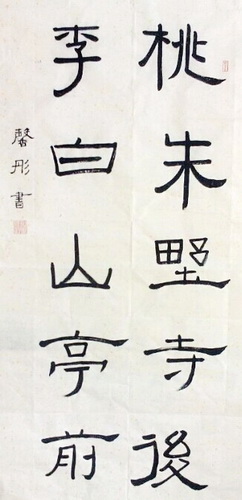 桃朱野寺後
李白山亭前
馨彤書